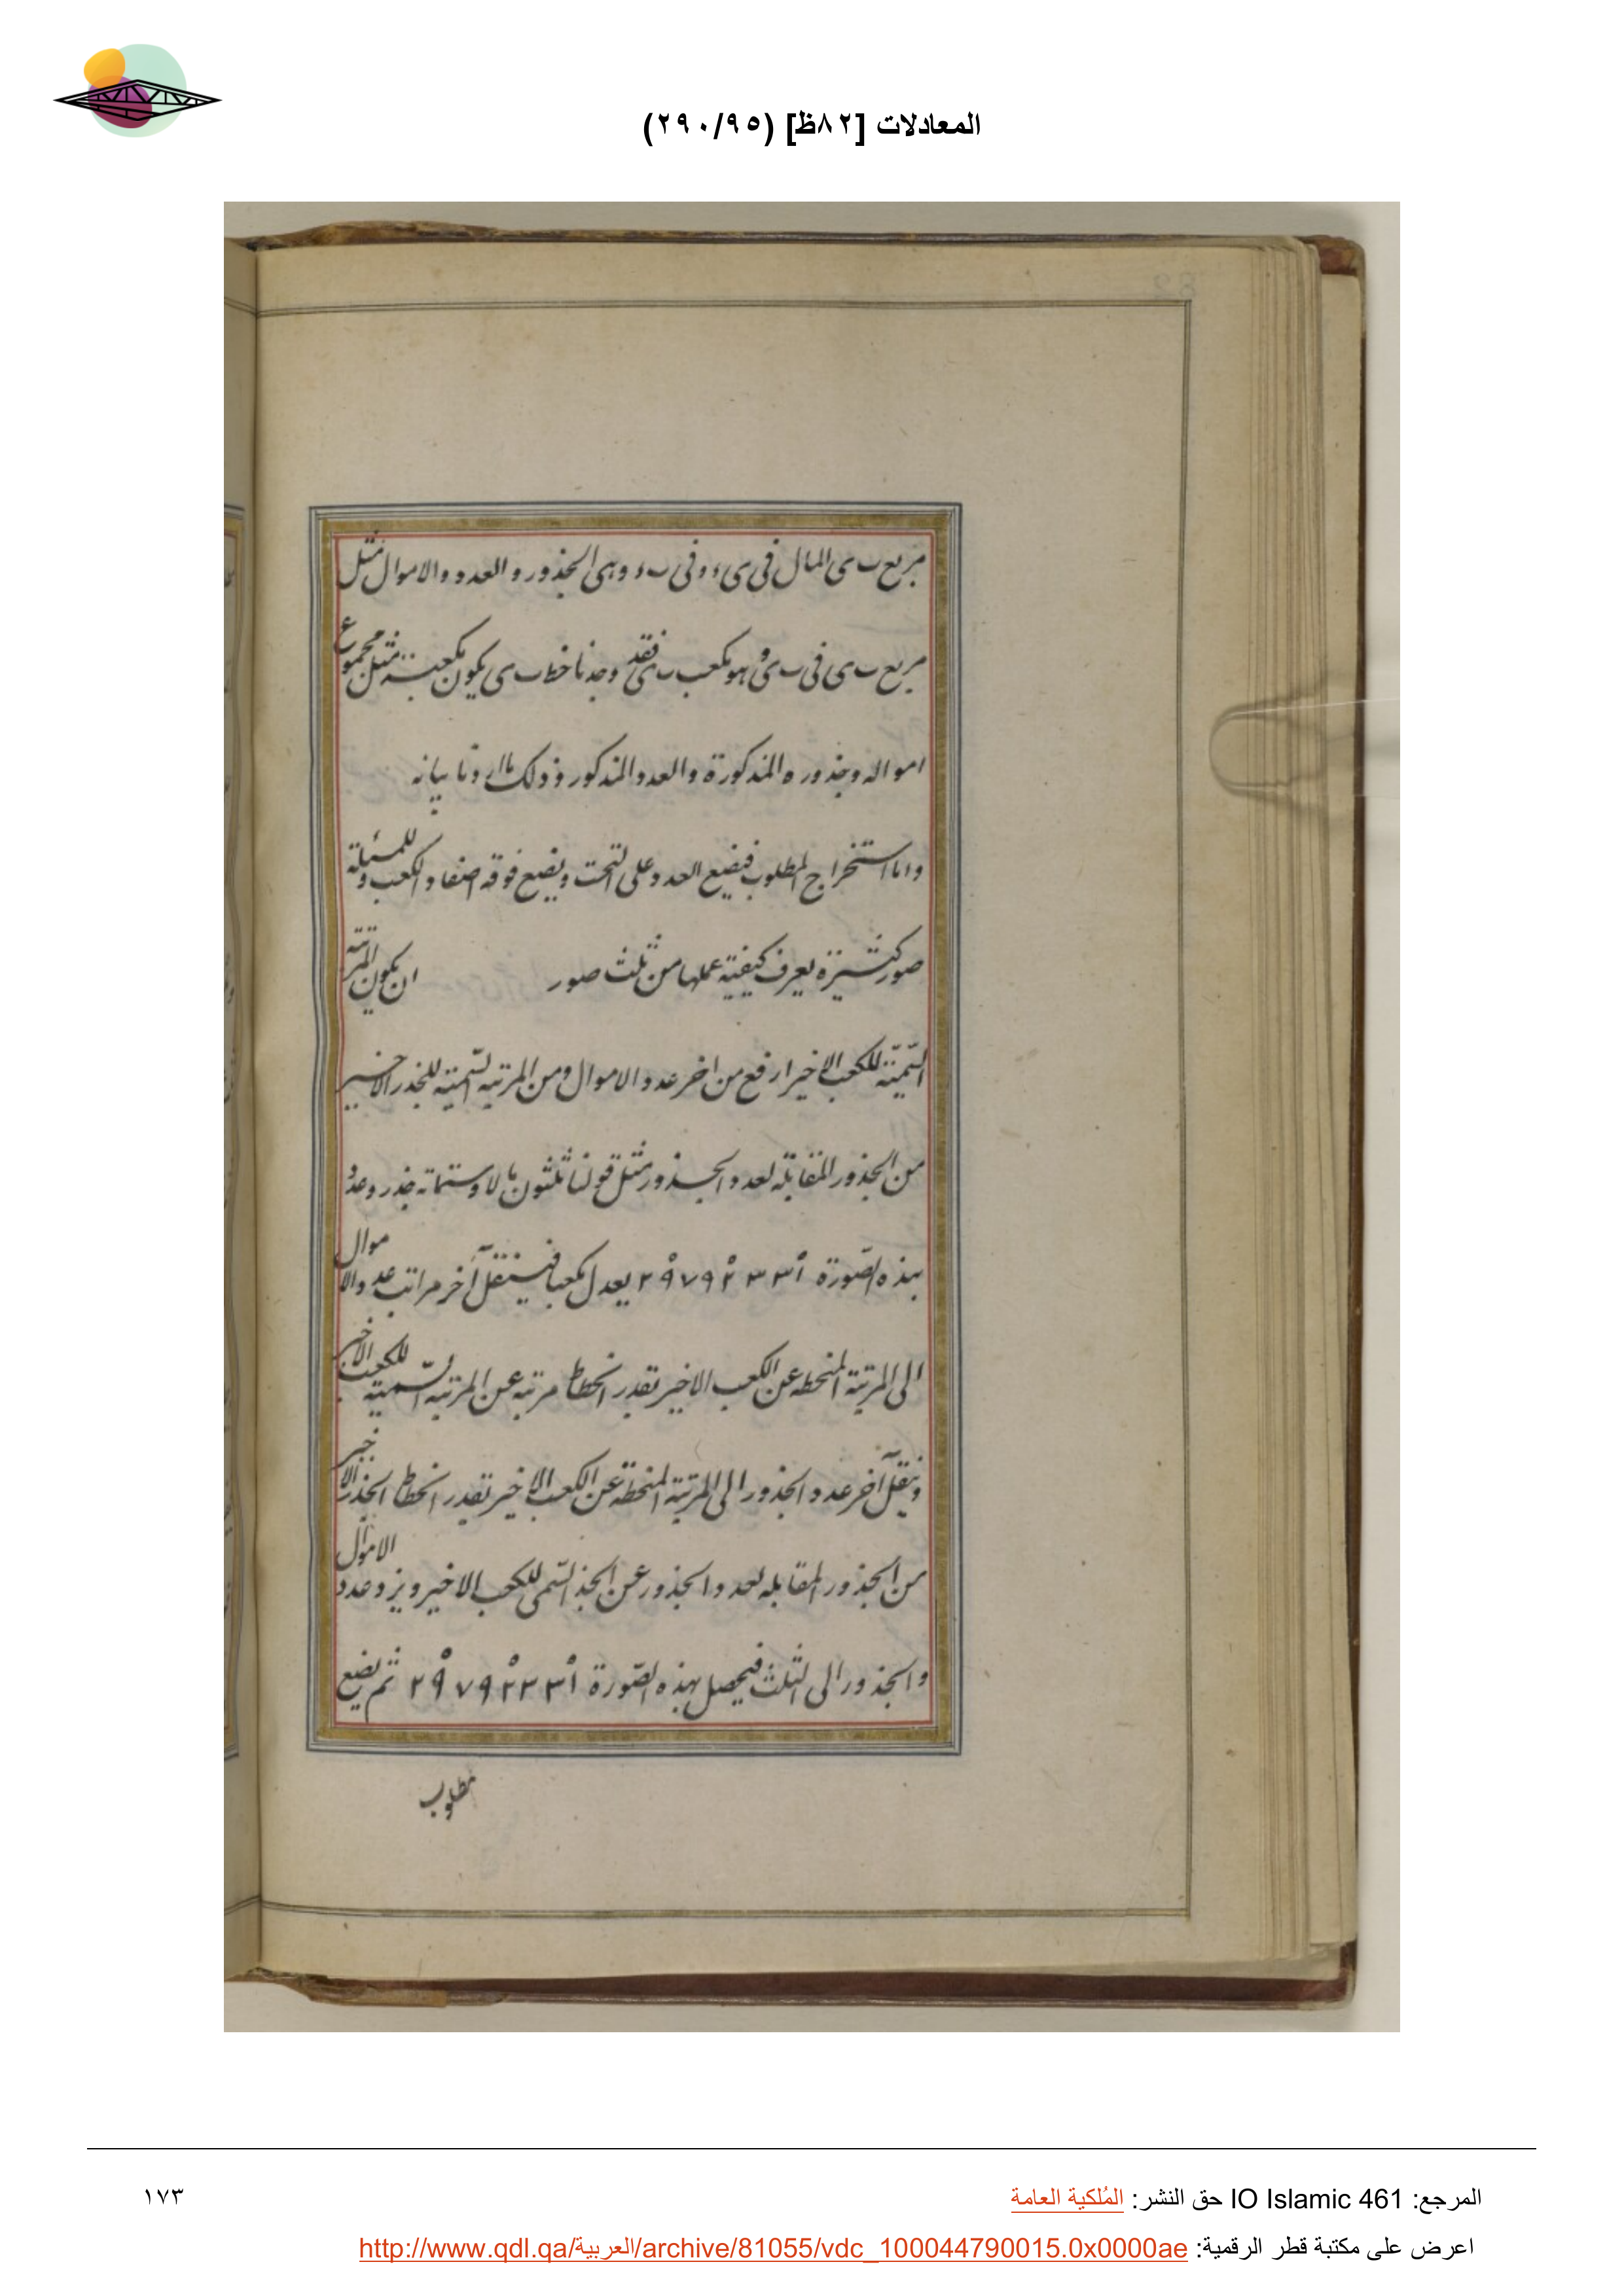 المعادلات [٨٢ظ] (٢٩٠/٩٥)
مربع ب ى المال فى ى ء وفى ب ء وهى الجذور والعدد والاموال مثل
مربع ب ى فى ب ى وهو مكعب ب ى فقد وجدنا خط ب ى يكون مكعبه مثل مجموع
امواله وجذوره المذكورة والعدد المذكور وذلك ما اردنا بيانه
واما استخراج المطلوب فيضع العدد على التخت ويضع فوقه اصفار الكعب وللمسئلة
صور كثيرة يعرف كيفية عملها من ثلث صور ان يكون المرتبة
السّميّة للكعب الاخير ارفع من اخر عدد الاموال ومن المرتبه السّميّة للجذر الاخير
من الجذور المقابله لعدد الجذور مثل قولنا ثلثون مالا وستمائه جذر وعدد
بهذه الصّورة ٢٩٧٩٢٣٣١ يعدل كعبا فينقل آخر مراتب عدد الاموال
الى المرتبة المنحطه عن الكعب الاخير بقدر انحطاط مرتبه عن المرتبه السّميه للكعب الاخير
وينقل آخر عدد الجذور الى المرتبة المنحطة عن الكعب الاخير بقدر انحطاط الجذر الاخير
من الجذور المقابله لعدد الجذور عن الجذر السّمى للكعب الاخير ويرد عدد الاموال
والجذور الى الثلث فيحصل بهذه الصّورة ٢٩٧٩٢٣٣١ ثم يضع
مطلوب
المرجع: IO Islamic 461 حق النشر: المُلكية العامة
١٧٣
اعرض على مكتبة قطر الرقمية: http://www.qdl.qa/العربية/archive/81055/vdc_100044790015.0x0000ae